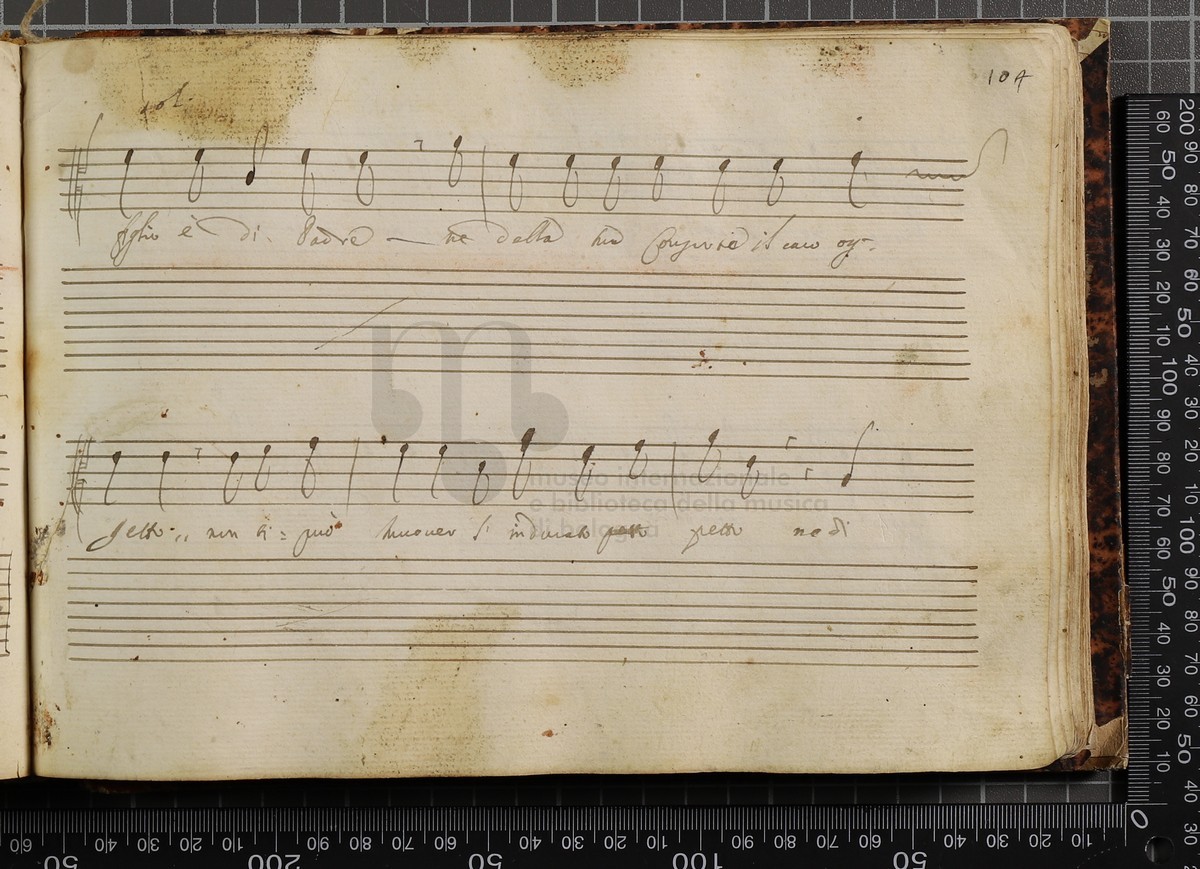 104
figlio è di Padre — ne della tua Consorte il caro og-
getto,, non ti = può muover l' indurato petto petto ne di
museo internazionale
e biblioteca della musica
di bologna